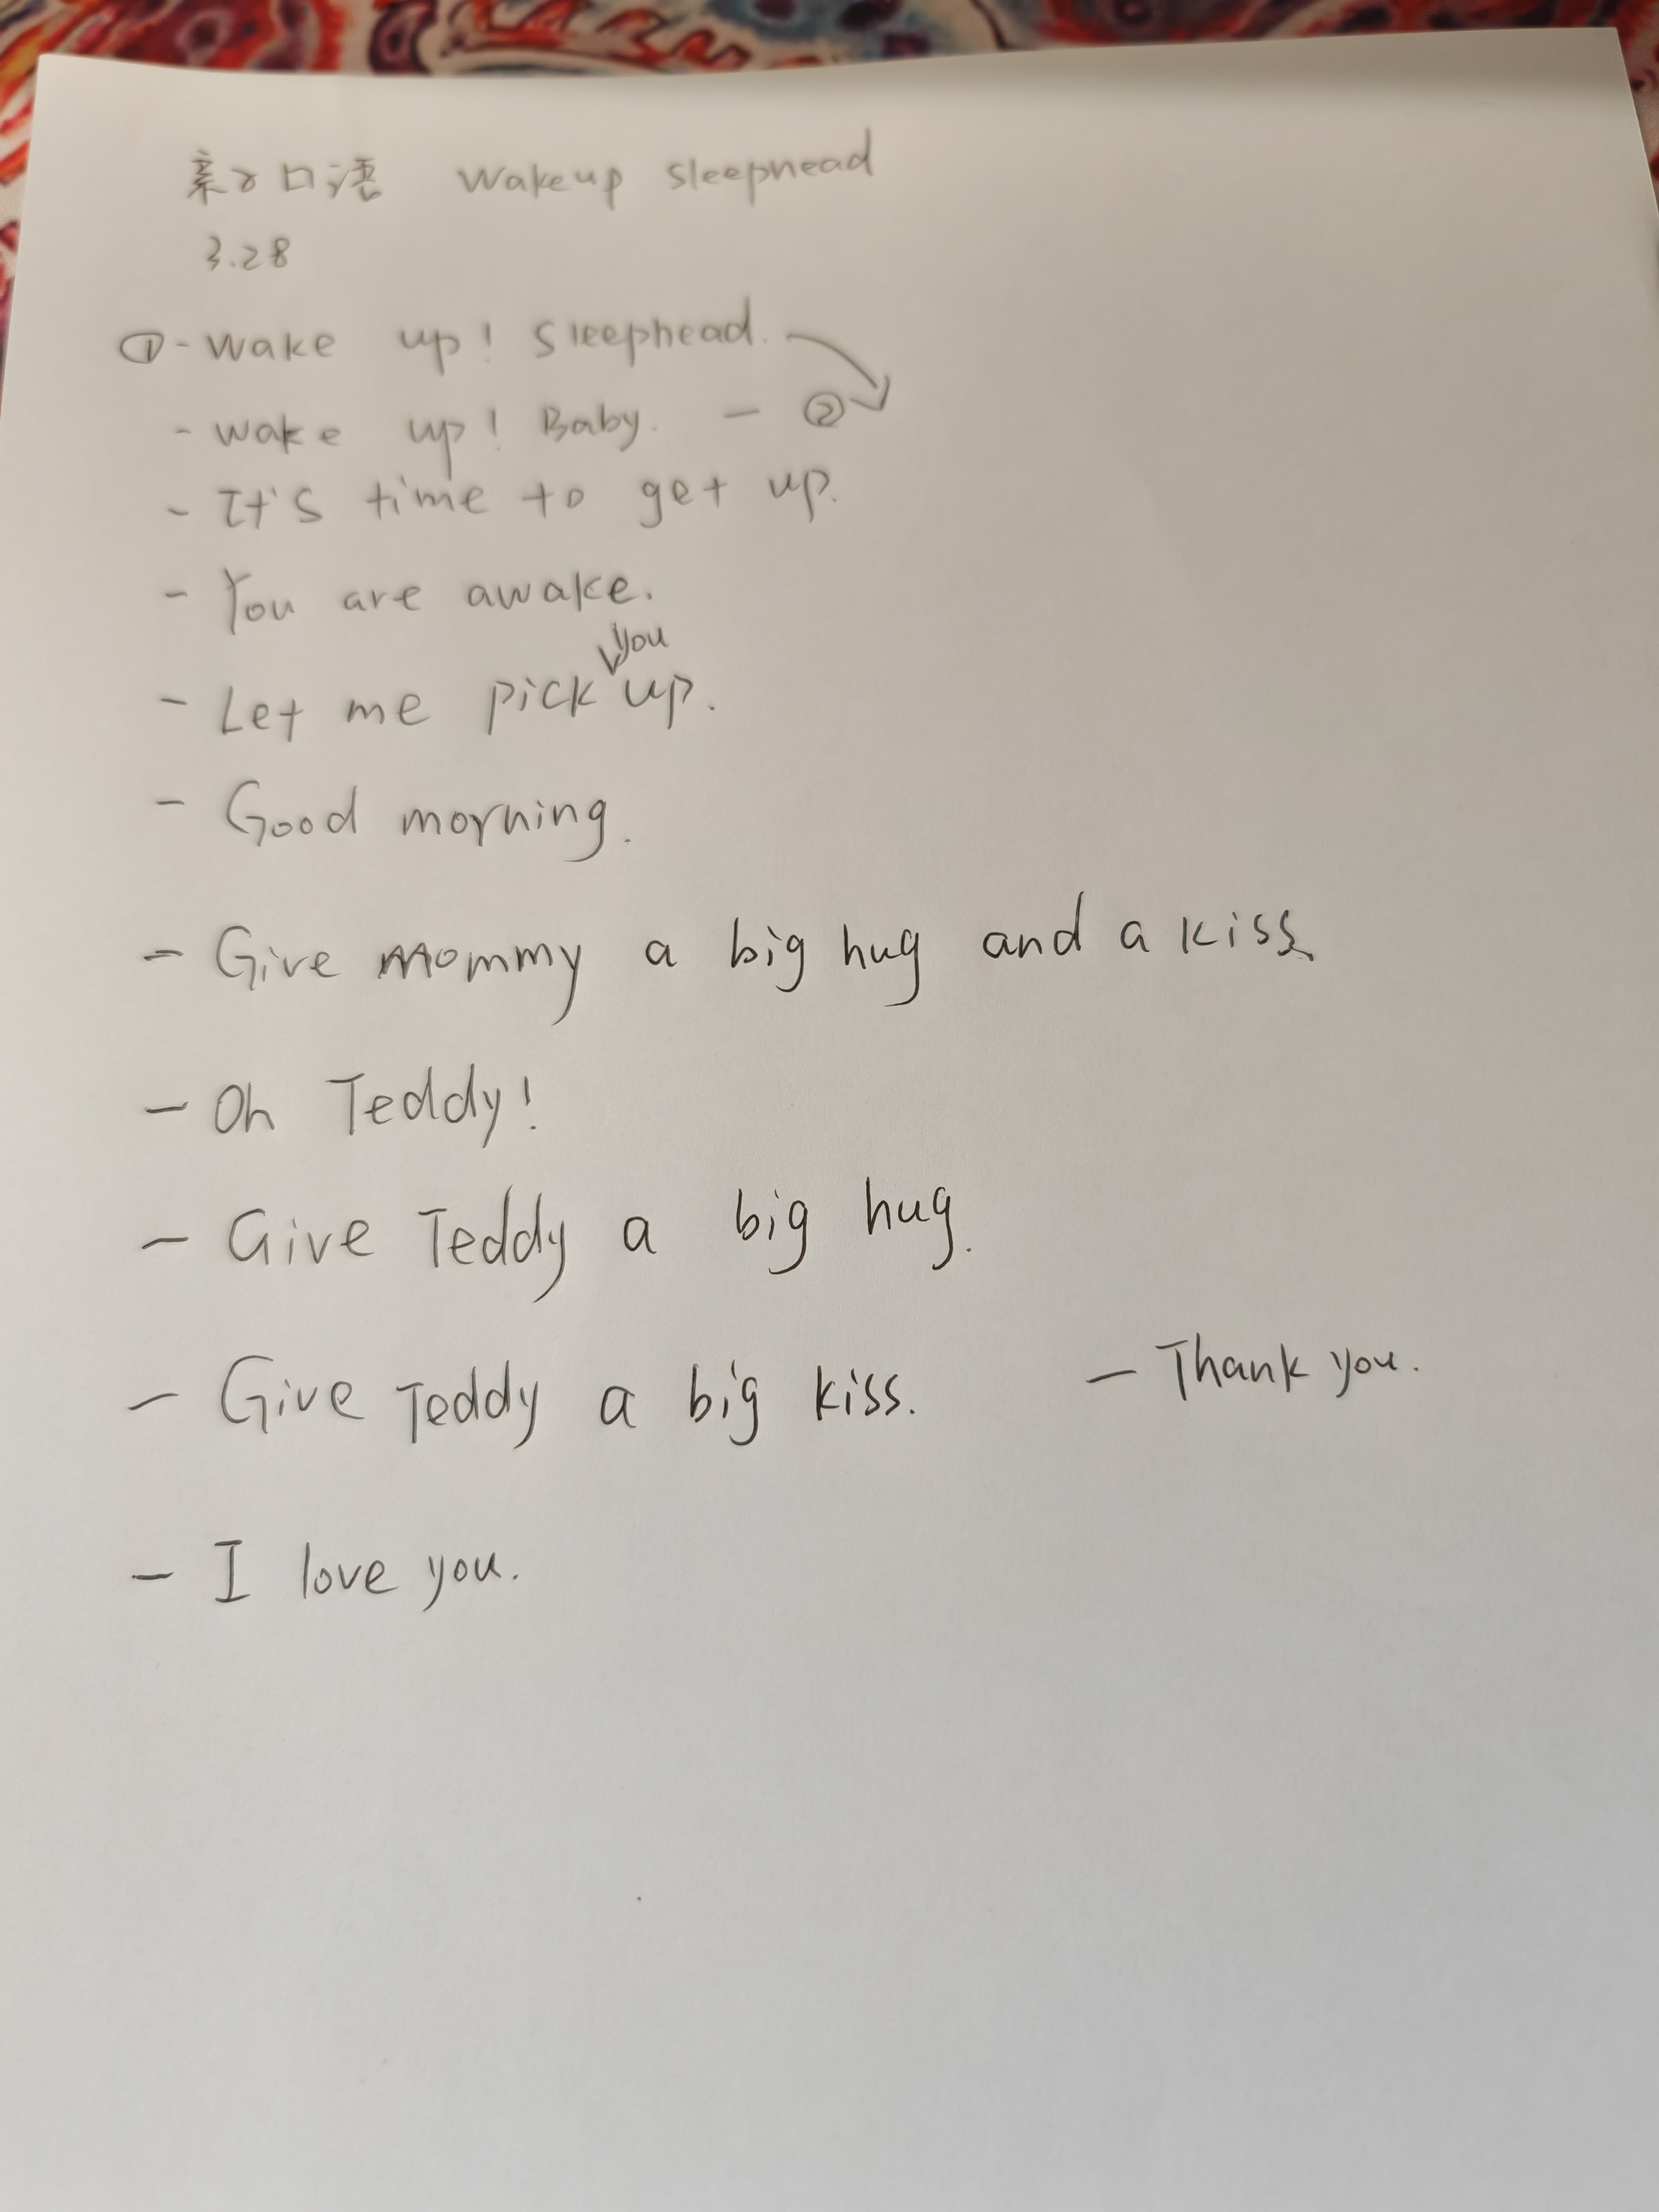 亲子口语 Wakeup sleephead
3.28
①-Wake up! Sleephead.
- Wake up! Baby. - ②
- It's time to get up.
- You are awake.
- Let me pick you up.
- Good morning.
- Give Mommy a big hug and a kiss.
- Oh Teddy!
- Give Teddy a big hug.
- Give Teddy a big kiss. - Thank you.
- I love you.